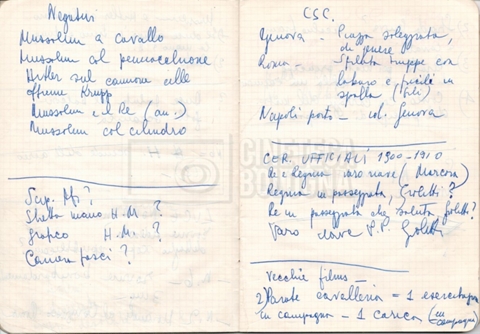 Negativi
Mussolini a cavallo
Mussolini col pennacchione
Hitler sul cannone alle
officine Krupp
Mussolini e il Re (an.)
Mussolini col cilindro
Sup. Mo?
Stretta mano H.M. ?
grafico H.M. ?
Camera fasci?
C.S.C.
Genova - Piazza soleggiata,
di genere
Roma - Sfilata truppe con
labaro e fucili in
spalla
Napoli porto - col. Genova
CER. UFFICIALI 1900-1910
Re e Regina (Marconi)
Regina in passeggiata, Giolitti?
Re in passeggiata che saluta Giolitti?
Varo nave Giolitti
Vecchie films
2) Parate cavalleria = 1 esercitaz.
in campagna - 1 carica (in
campagna)
CINETECA
BO